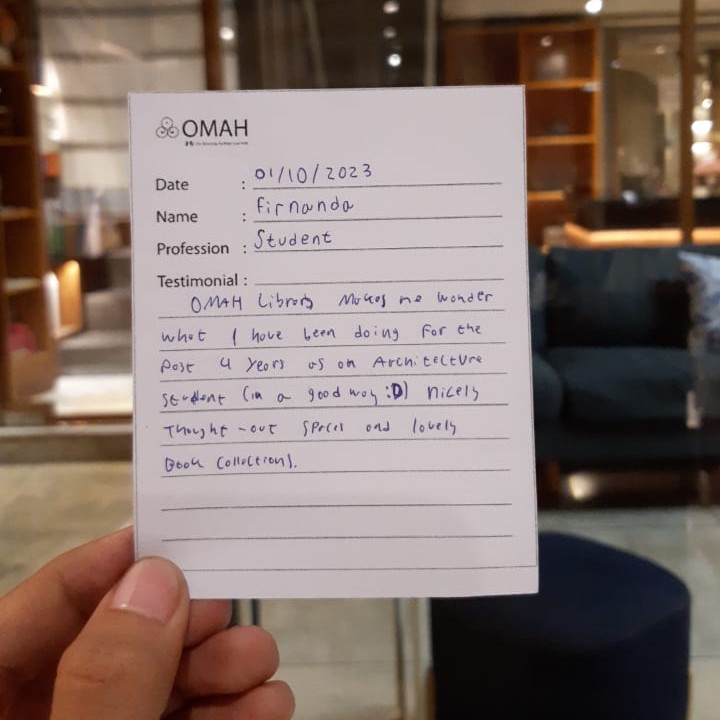 OMAH
Date : 01/10/2023
Name : Firnanda
Profession : Student
Testimonial :
OMAH Library Makes me wonder
what I have been doing for the
past 4 years as an Architecture
student (in a good way :D) nicely
Thought-out spaces and lovely
Book Collections.